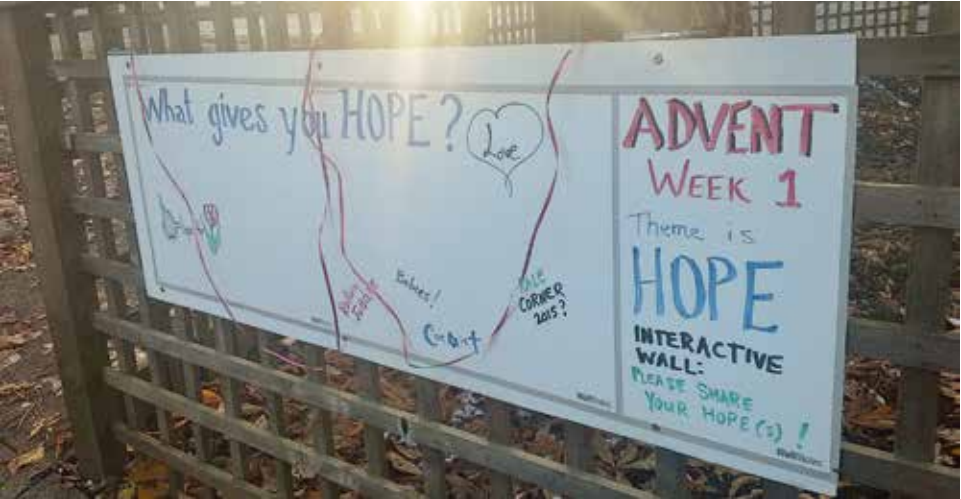 What gives you HOPE?
Love
Babies!
Comfort
CORNER
2015?
ADVENT
WEEK 1
Theme is
HOPE
INTERACTIVE
WALL:
PLEASE SHARE
YOUR HOPE(s)!